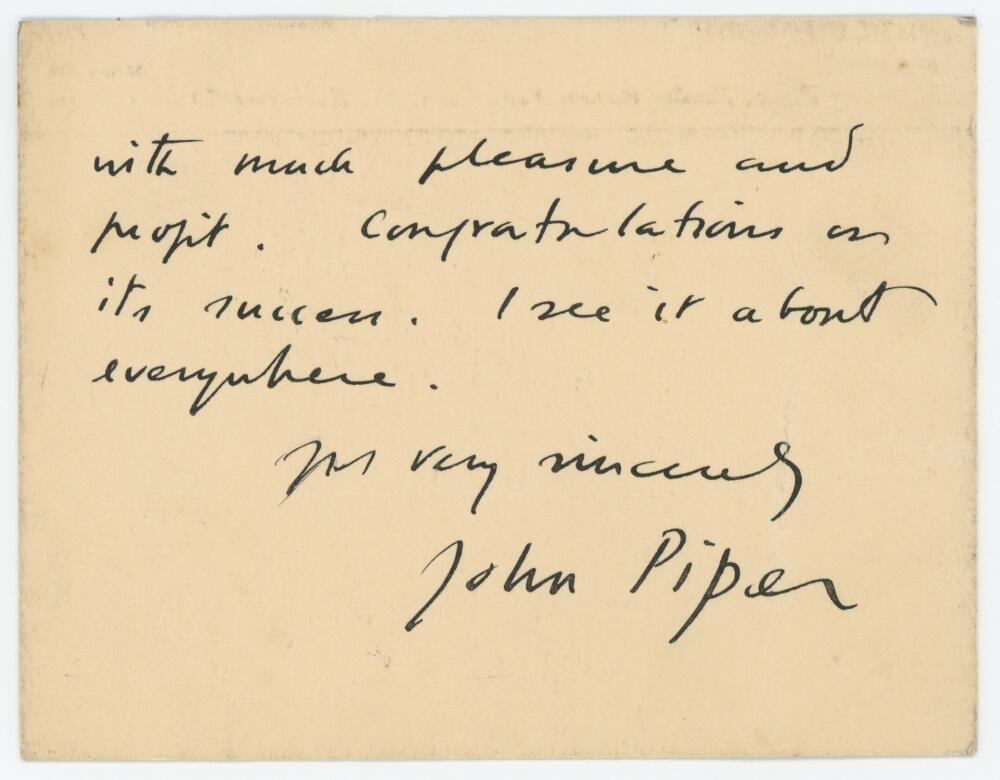 with much pleasure and
profit. Congratulations on
its success. I see it about
everywhere.
Yrs very sincerely
John Piper